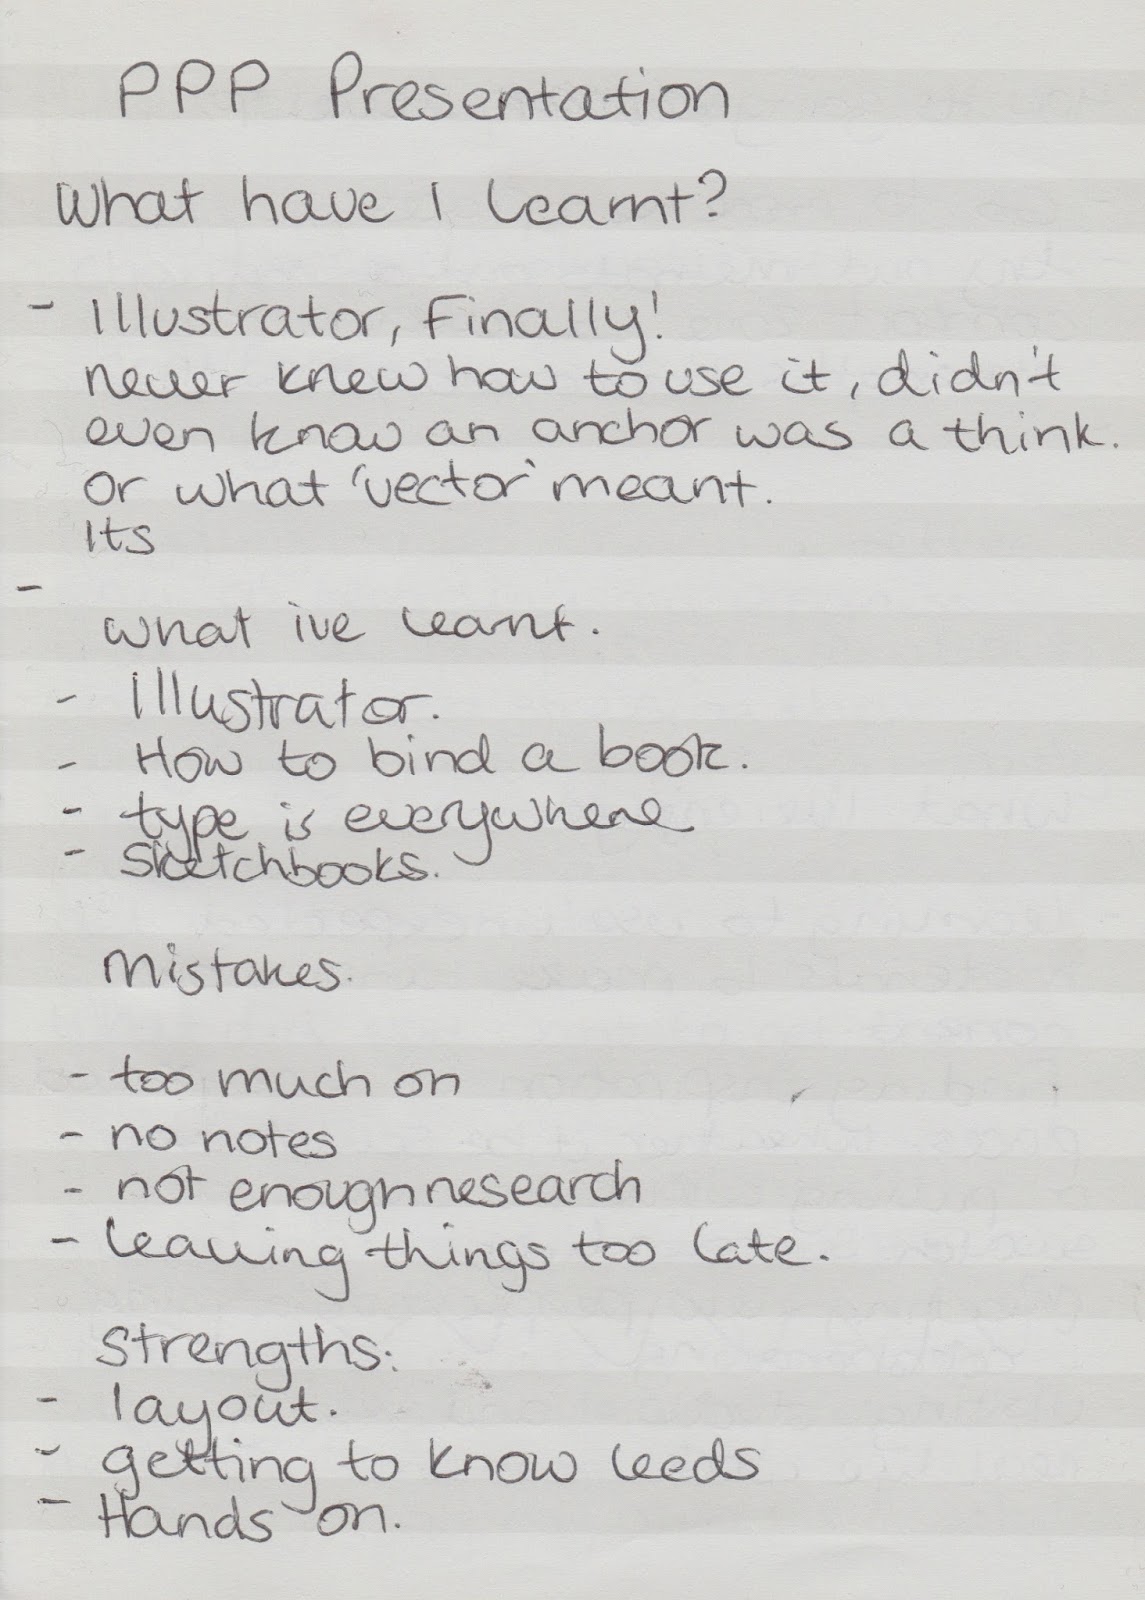 PPP Presentation
What have I learnt?
- Illustrator, Finally!
never knew how to use it, didn't
even know an anchor was a think.
Or what 'vector' meant.
Its
-
what ive learnt.
- Illustrator.
- How to bind a book.
- type is everywhere
- Sketchbooks.
Mistakes.
- too much on
- no notes
- not enough research
- leaving things too late.
Strengths:
- layout.
- getting to know leeds
- Hands on.